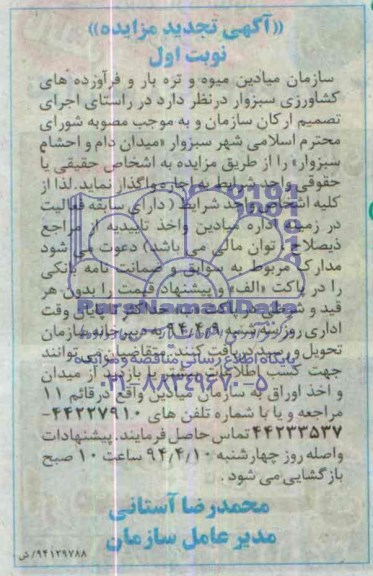 «آگهی تجدید مزایده»
نوبت اول
سازمان میادین میوه و تره بار و فرآورده های
کشاورزی سبزوار درنظر دارد در راستای اجرای
تصمیم ارکان سازمان و به موجب مصوبه شورای
محترم اسلامی شهر سبزوار «میدان دام و احشام
سبزوار» را از طریق مزایده به اشخاص حقیقی یا
حقوقی واجد شرایط به اجاره واگذار نماید. لذا از
کلیه اشخاص واجد شرایط (دارای سابقه فعالیت
در زمینه اداره میادین واخذ تاییدیه از مراجع
ذیصلاح، توان مالی می باشد) دعوت می شود
مدارک مربوط به سوابق و ضمانت نامه بانکی
را در پاکت «الف» و پیشنهاد قیمت را بدون هر
قید و شرطی در پاکت حداکثر تا پایان وقت
ParsNamadData
اداری روز سه شنبه ۹۴,۴,۹ به دبیرخانه سازمان
تحویل و رسید دریافت کنند. متقاضیان می توانند
پایگاه اطلاع رسانی مناقصه و مزایده
جهت کسب اطلاعات بیشتر با بازدید از میدان
۰۲۱-۸۸۳۴۹۶۷۰-۵
و اخذ اوراق به سازمان میادین واقع در قائم ۱۱
مراجعه و یا با شماره تلفن های ۴۴۲۲۷۹۱۰-
۴۴۲۳۳۵۳۷ تماس حاصل فرمایند. پیشنهادات
واصله روز چهارشنبه ۹۴,۴,۱۰ ساعت ۱۰ صبح
بازگشایی می شود.
محمدرضا آستانی
مدیر عامل سازمان
۹۴۱۲۹۷۸۸/ش